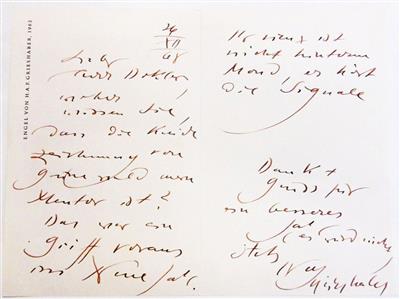 ENGEL VON HAP GRIESHABER, 1962
24
XII
68
Lieber
Herr Doktor,
woher
wissen Sie,
dass die Kreide
zeichnung von
Grünewald mein
Mentor ist?
Das war ein
Griff voraus
ins Neue Jahr.
ist
nicht hinterm
Mond, er hört
die Signale
Dank +
Gruss für
ein besseres
Jahr (es wird nicht
Grieshaber